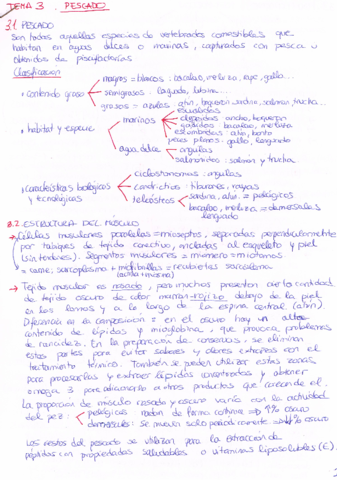 TEMA 3. PESCADO
3.1. PESCADO
Son todas aquellas especies de vertebrados comestibles que
habitan en aguas dulces o marinas, capturados con pesca u
obtenidos de piscifactorías
Clasificación
• contenido graso
magros = blancos: bacalao, merluza, rape, gallo...
semigrasos: lenguado, lubina...
grasos = azules: atún, boquerón, sardina, salmón, trucha...
• habitat y especie
marinos
clupeidos: boquerón
gadidos: bacalao, merluza
escumbridos: atún, bonito
peces planos: gallo, lenguado
agua dulce
anguilas
salmónidos: salmón y trucha
• características biológicas
y tecnológicas
ciclostomos: anguilas
condrictios: tiburones, rayas
teleósteos
sardina, atún = pelágicos
bacalao, merluza = demersales
lenguado
3.2. ESTRUCTURA DEL MÚSCULO
→ Células musculares paralelas = mioseptos, separadas perpendicularmente
por tabiques de tejido conectivo, ancladas al esqueleto y piel
(sin tendones). Segmentos musculares = miómero = miotomos
= carne; sarcoplasma + miofibrillas = recubiertas sarcolema
(actina + miosina)
→ Tejido muscular es rosado, pero muchos presentan cierta cantidad
de tejido oscuro de color marrón-rojizo debajo de la piel
en los lomos y a lo largo de la espina central (atún)
Diferencia es la composición = en el oscuro hay un alto
contenido de lípidos y mioglobina, que provoca problemas
de rancidez. En la preparación de conservas, se eliminan
estas partes para evitar sabores y olores extraños con el
tratamiento térmico. También se pueden utilizar estas zonas
para procesarlas y extraer lípidos concentrados y obtener
omega 3 para adicionarlo a otros productos que carecen de él.
La proporción de músculo rosado y oscuro varía con la actividad
del pez:
pelágicos: nadan de forma continua ⇒ ↑% oscuro
demersales: Se mueven solo periódicamente ⇒ ↓% oscuro
Los restos del pescado se utilizan para la extracción de
péptidos con propiedades saludables o vitaminas liposolubles (E).